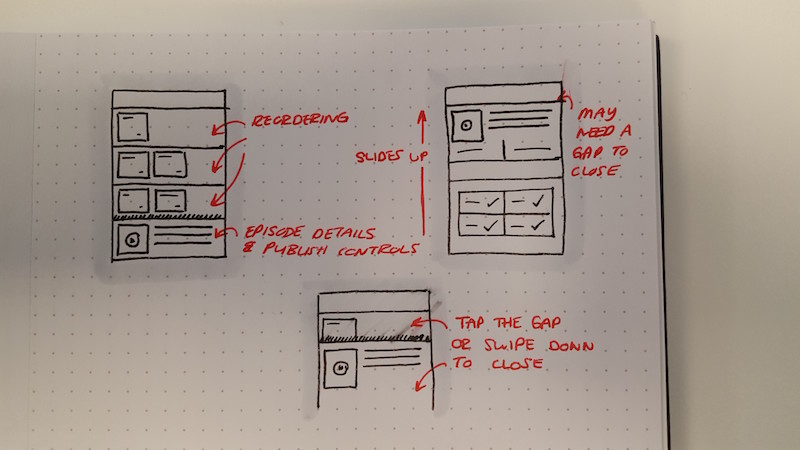 REORDERING
EPISODE DETAILS
& PUBLISH CONTROLS
SLIDES UP
MAY
NEED A
GAP TO
CLOSE
TAP THE GAP
OR SWIPE DOWN
TO CLOSE